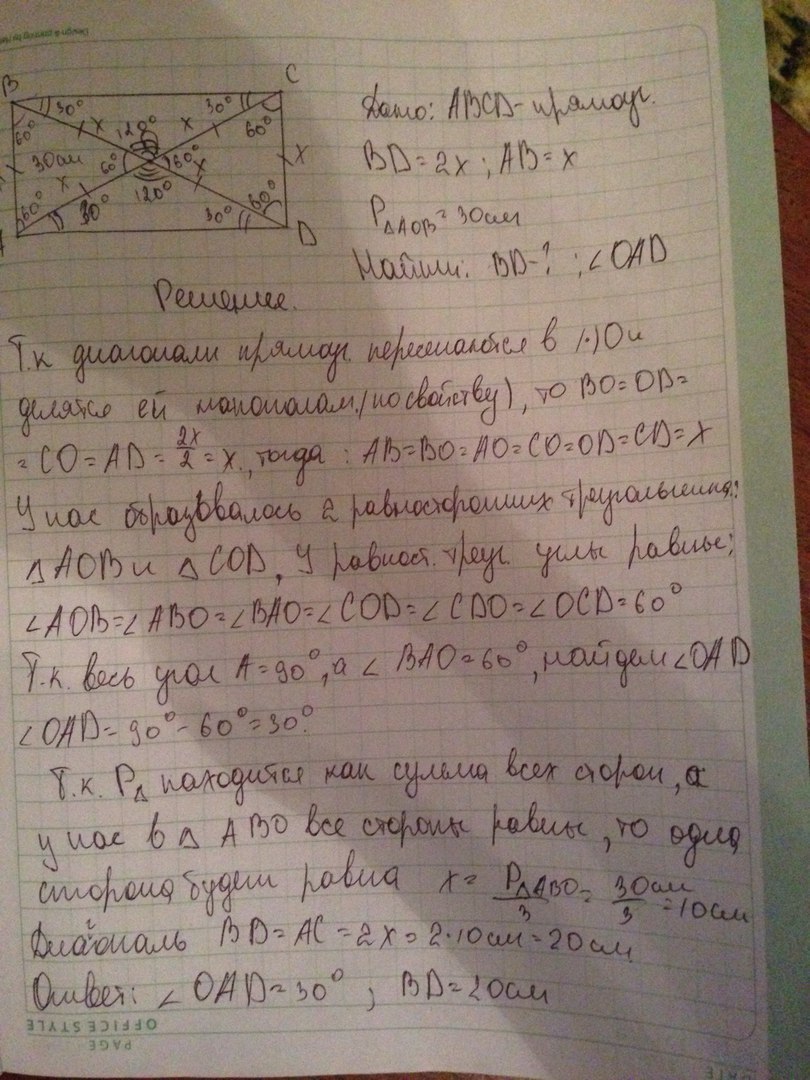 B C
30° 30°
60° x 120° x 60°
30см 60° 60° x x
x 120°
60° 30° 30° 60°
D
Дано: ABCD - прямоуг.
BD = 2x ; AB = x
P△AOB = 30см
Найти: BD - ? ; ∠OAD
Решение.
Т.к диагонали прямоуг. пересекаются в (·) O и
делятся ей напополам (по свойству), то BO = OD =
= CO = AD = 2x/2 = x., тогда : AB = BO = AO = CO = OD = CD = x
У нас образовалось 2 равносторонних треугольника:
△AOB и △COD, У равност. треуг. углы равны:
∠AOB = ∠ABO = ∠BAO = ∠COD = ∠CDO = ∠OCD = 60°
Т.к. весь угол A = 90°, а ∠BAO = 60°, найдем ∠OAD
∠OAD = 90° - 60° = 30°.
Т.к. P△ находится как сумма всех сторон, а
у нас в △ABO все стороны равны, то одна
сторона будет равна x = P△ABO/3 = 30см/3 = 10см
Диагональ BD = AC = 2x = 2·10см = 20см
Ответ: ∠OAD = 30° ; BD = 20см
OFFICE STYLE
PAGE
DATE